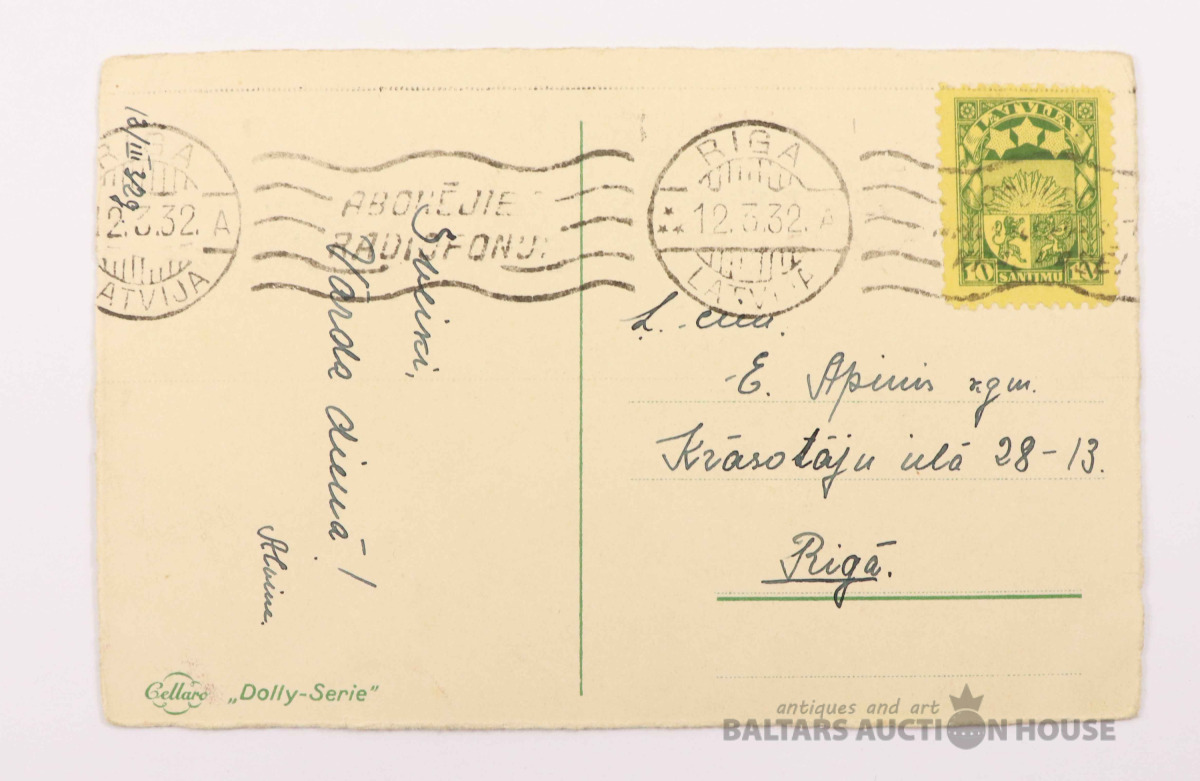 13/III 32g
RIGA
12.3.32. A
LATVIJA
ABONĒJIE
RADIOFONU.
RIGA
12.3.32. A
LATVIJA
LATVIJA
10 SANTIMU 10
Sveiki,
Vārda dienā!
Alvine.
E. Apinis kgm.
Krāsotāju ielā 28-13.
Rigā.
Cellaro „Dolly-Serie“
antiques and art
BALTARS AUCTION HOUSE